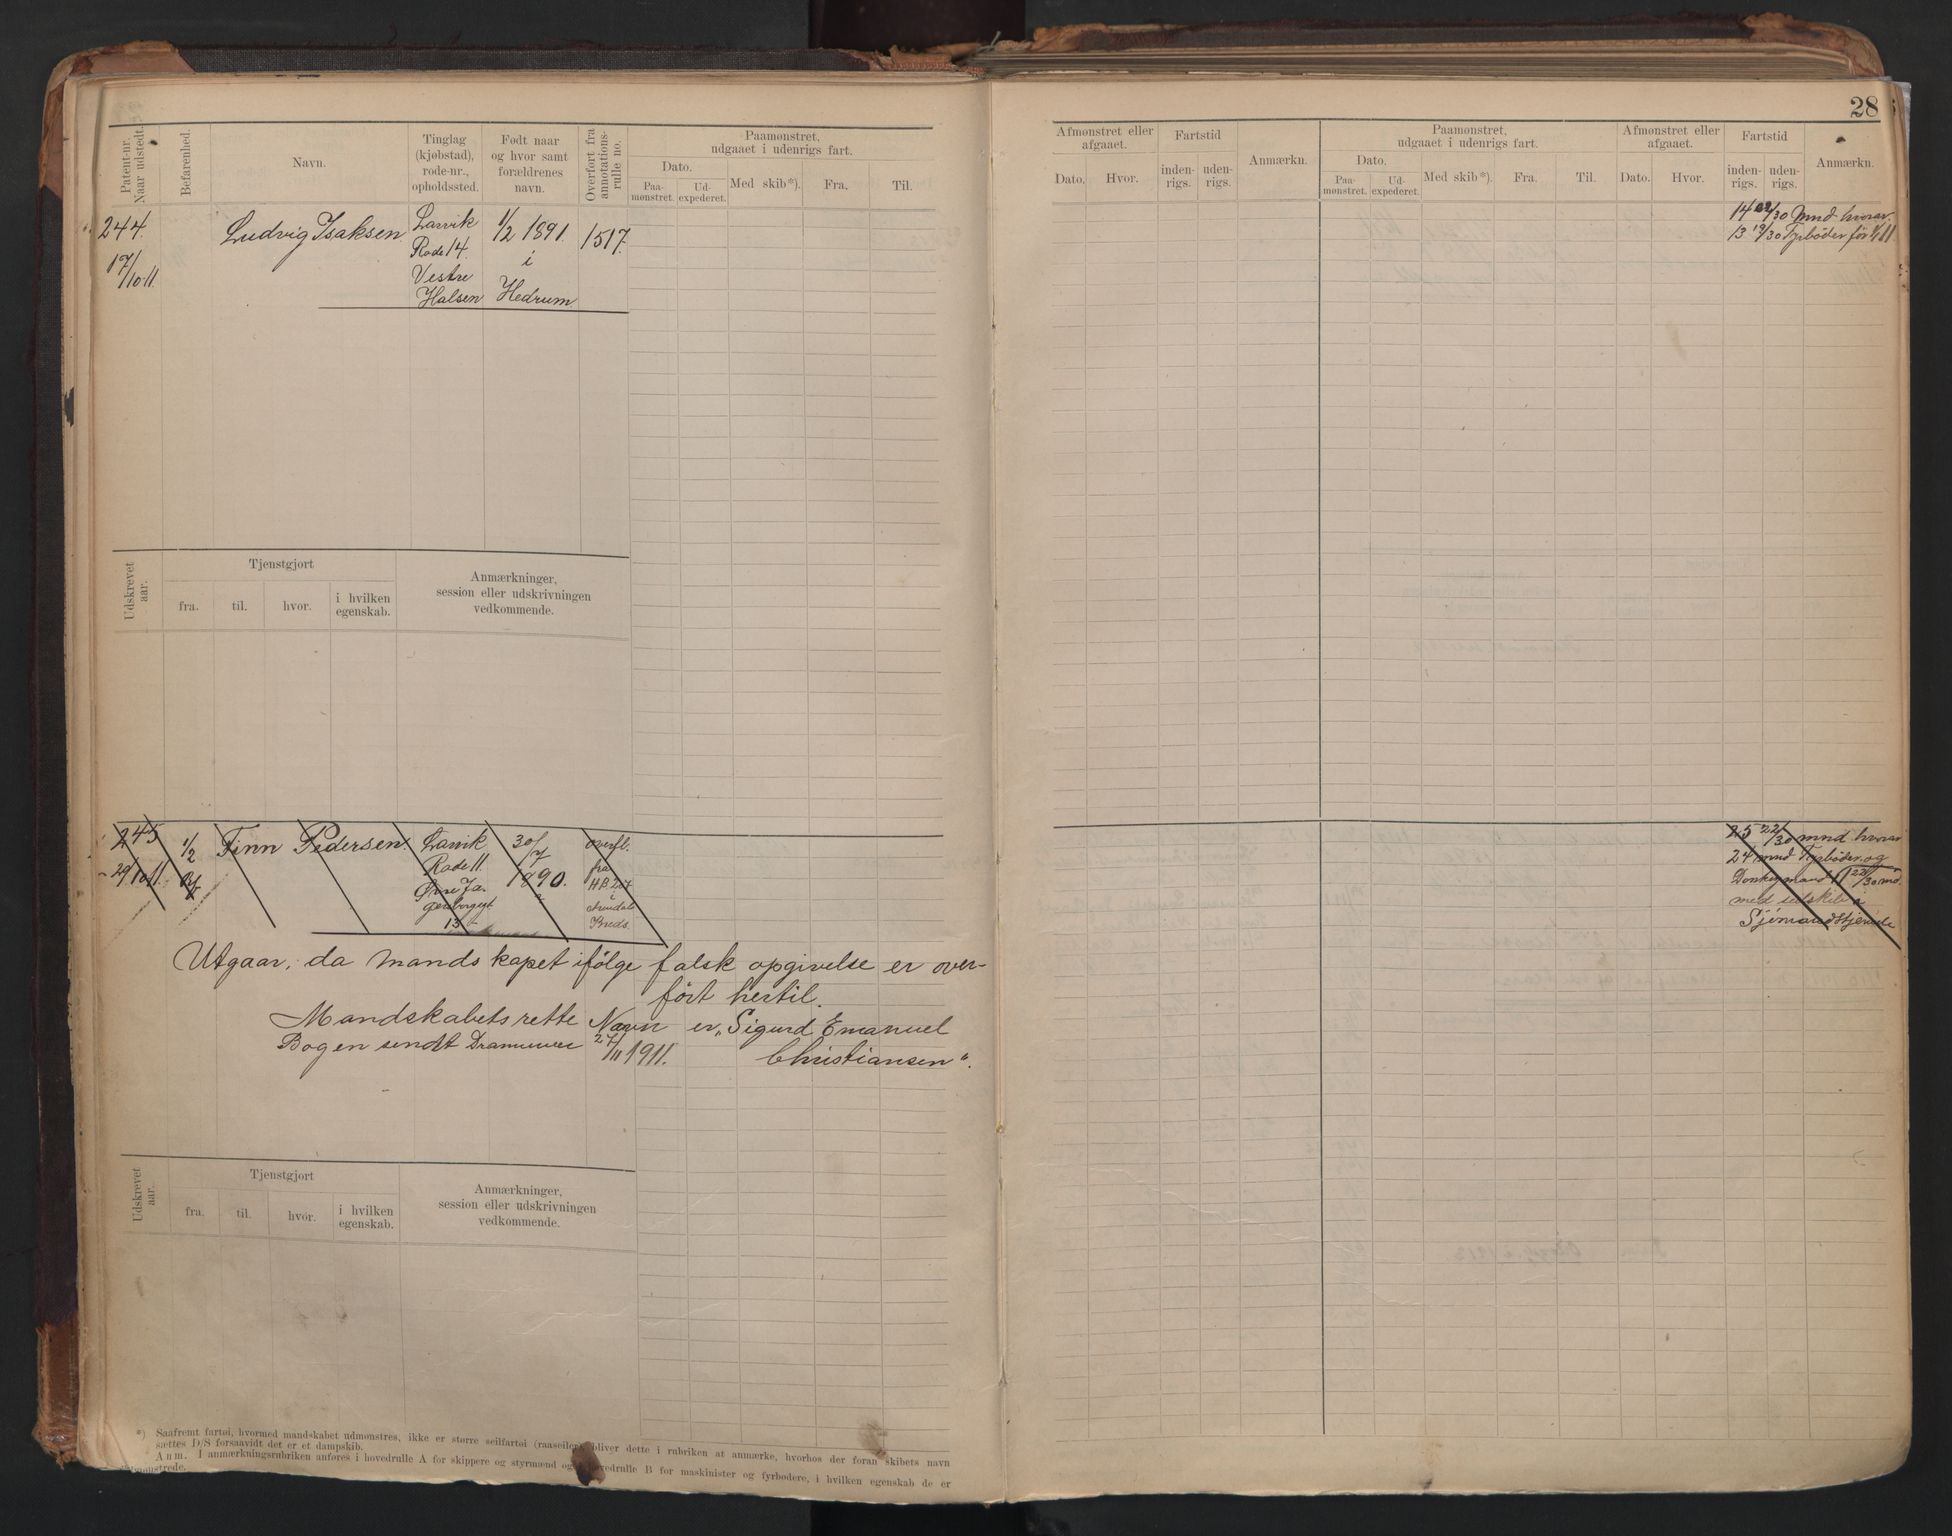 28
Patent-nr. Naar udstedt.
Befarenhed.
Navn.
Tinglag (kjøbstad), rode-nr., opholdssted.
Født naar og hvor samt forældrenes navn.
Overført fra annotations-rulle no.
Paamønstret, udgaaet i udenrigs fart.
Dato.
Paa-mønstret.
Ud-expederet.
Med skib*).
Fra.
Til.
Afmønstret eller afgaaet.
Dato.
Hvor.
Fartstid
inden-rigs.
uden-rigs.
Anmærkn.
Paamønstret, udgaaet i udenrigs fart.
Dato.
Paa-mønstret.
Ud-expederet.
Med skib*).
Fra.
Til.
Afmønstret eller afgaaet.
Dato.
Hvor.
Fartstid
inden-rigs.
uden-rigs.
Anmærkn.
244.
17/10 11.
Ludvig Isaksen.
Larvik
Rode 14.
Vestre
Halsen
1/2 1891.
i
Hedrum
1517.
/30 Mnd hvorav
13 19/30 Fyrbøder før
Udskrevet aar.
Tjenstgjort
fra.
til.
hvor.
i hvilken egenskab.
Anmærkninger,
session eller udskrivningen
vedkommende.
245
29/10 11.
1/2
Finn Pedersen.
Larvik
Rode 11.
13
30/7
1890.
overfl.
fra
i
Arendals
Kreds.
25 22/30 mnd. hvorav
24 mnd Fyrbøder og
Donkeymand
med
Sjømandstjeneste
Utgaar, da mandskapet ifølge falsk opgivelse er over-
ført hertil.
Mandskabets rette Navn er „Sigurd Emanuel
Christiansen“.
Bogen sendt Drammen 27/11 1911.
Udskrevet aar.
Tjenstgjort
fra.
til.
hvor.
i hvilken egenskab.
Anmærkninger,
session eller udskrivningen
vedkommende.
*) Saafremt fartøi, hvormed mandskabet udmønstres, ikke er større seilfartøi (raaseiler) bliver dette i rubriken at anmærke, hvorhos der foran skibets navn
sættes D/S forsaavidt det er et dampskib.
Anm. I anmærkningsrubriken anføres i hovedrulle A for skippere og styrmænd og i hovedrulle B for maskinister og fyrbødere, i hvilken egenskab de er